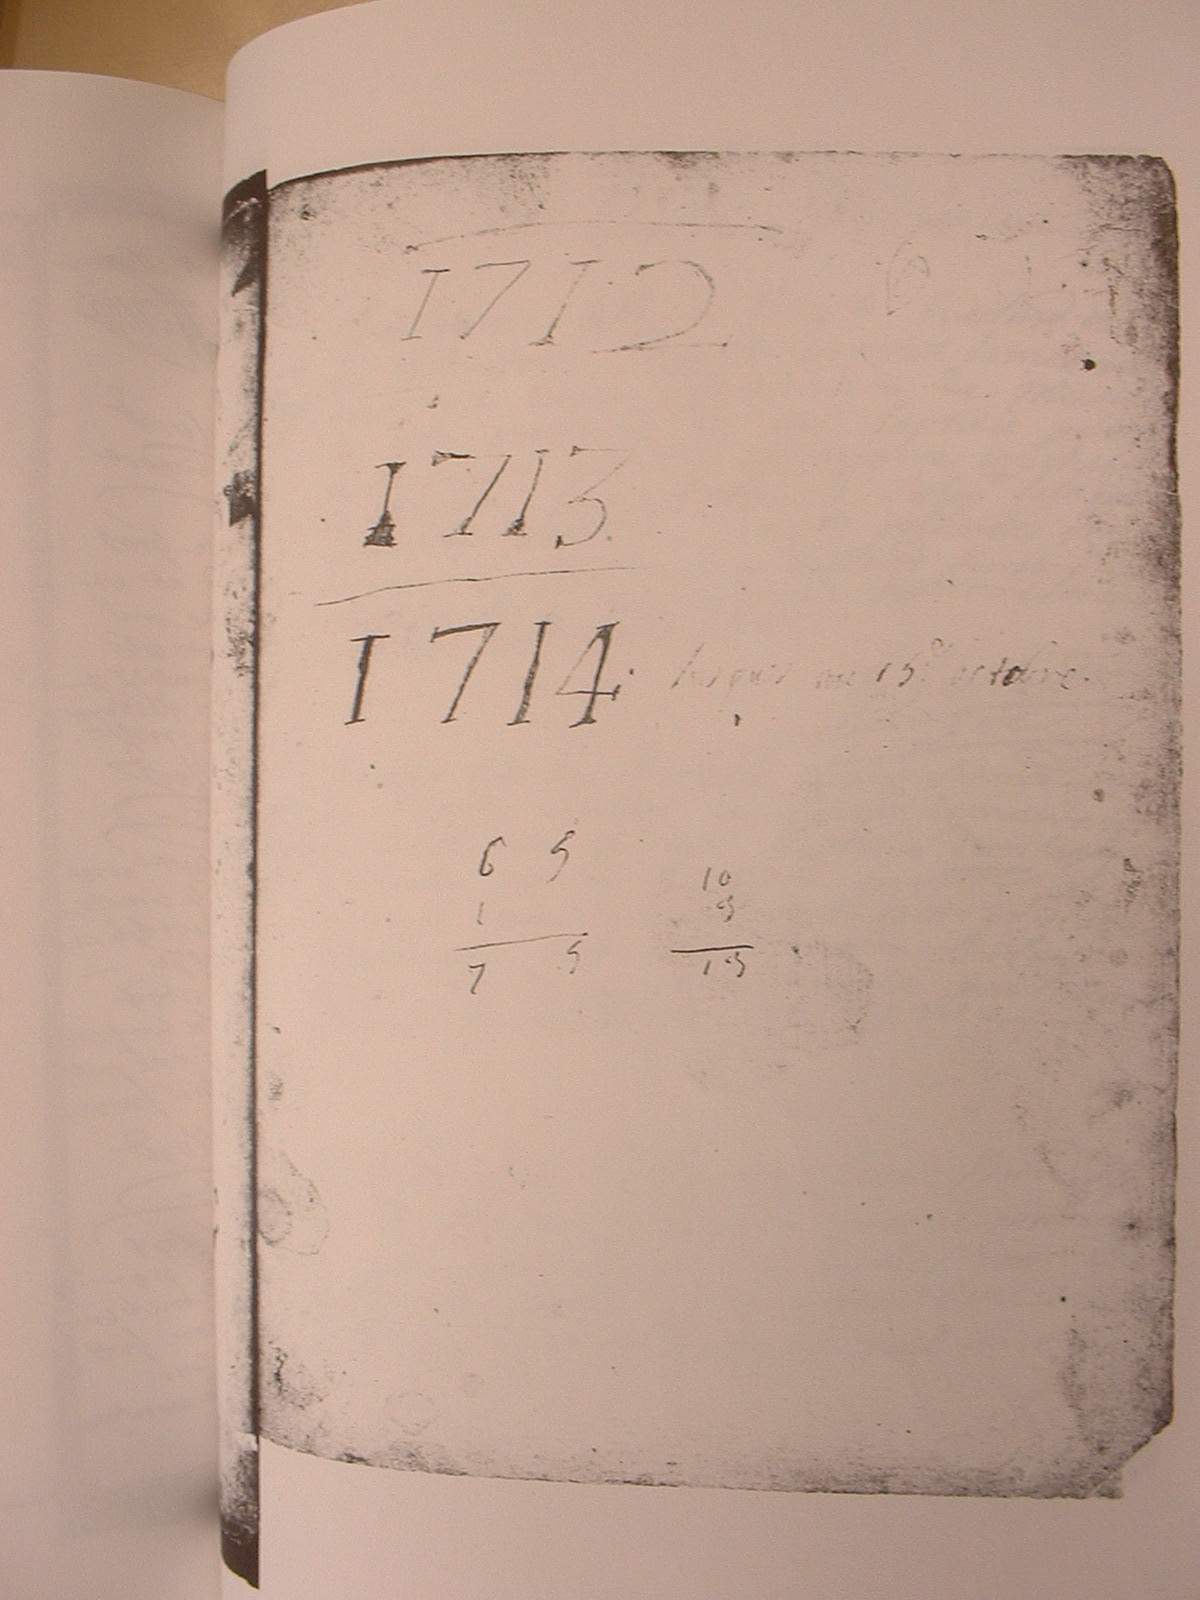 1712
1713.
1714. jusques au 15e octobre.
6 5
1
7 5
10
5
15